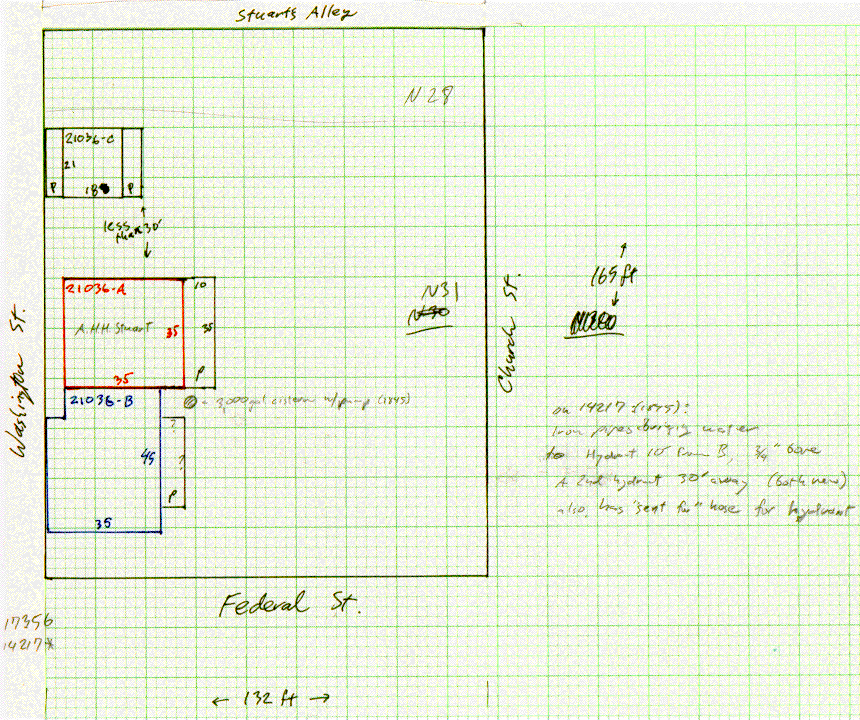 Stuarts Alley
N 28
21036-C
21
P 18 P
less
than 30'
21036-A
10
A.H.H. Stuart
35
35
35
P
N31
N30
Church St.
165 ft
Washington St.
21036-B
3,000 gal cistern w/pump (1845)
?
45
?
P
35
on 14217 (1845):
Iron pipes bringing water
to Hydrant 10' from B, 3/4" bore
A 2nd hydrant 30' away (both new)
also, has "sent for" hose for hydrant
Federal St.
17356
14217*
← 132 ft →